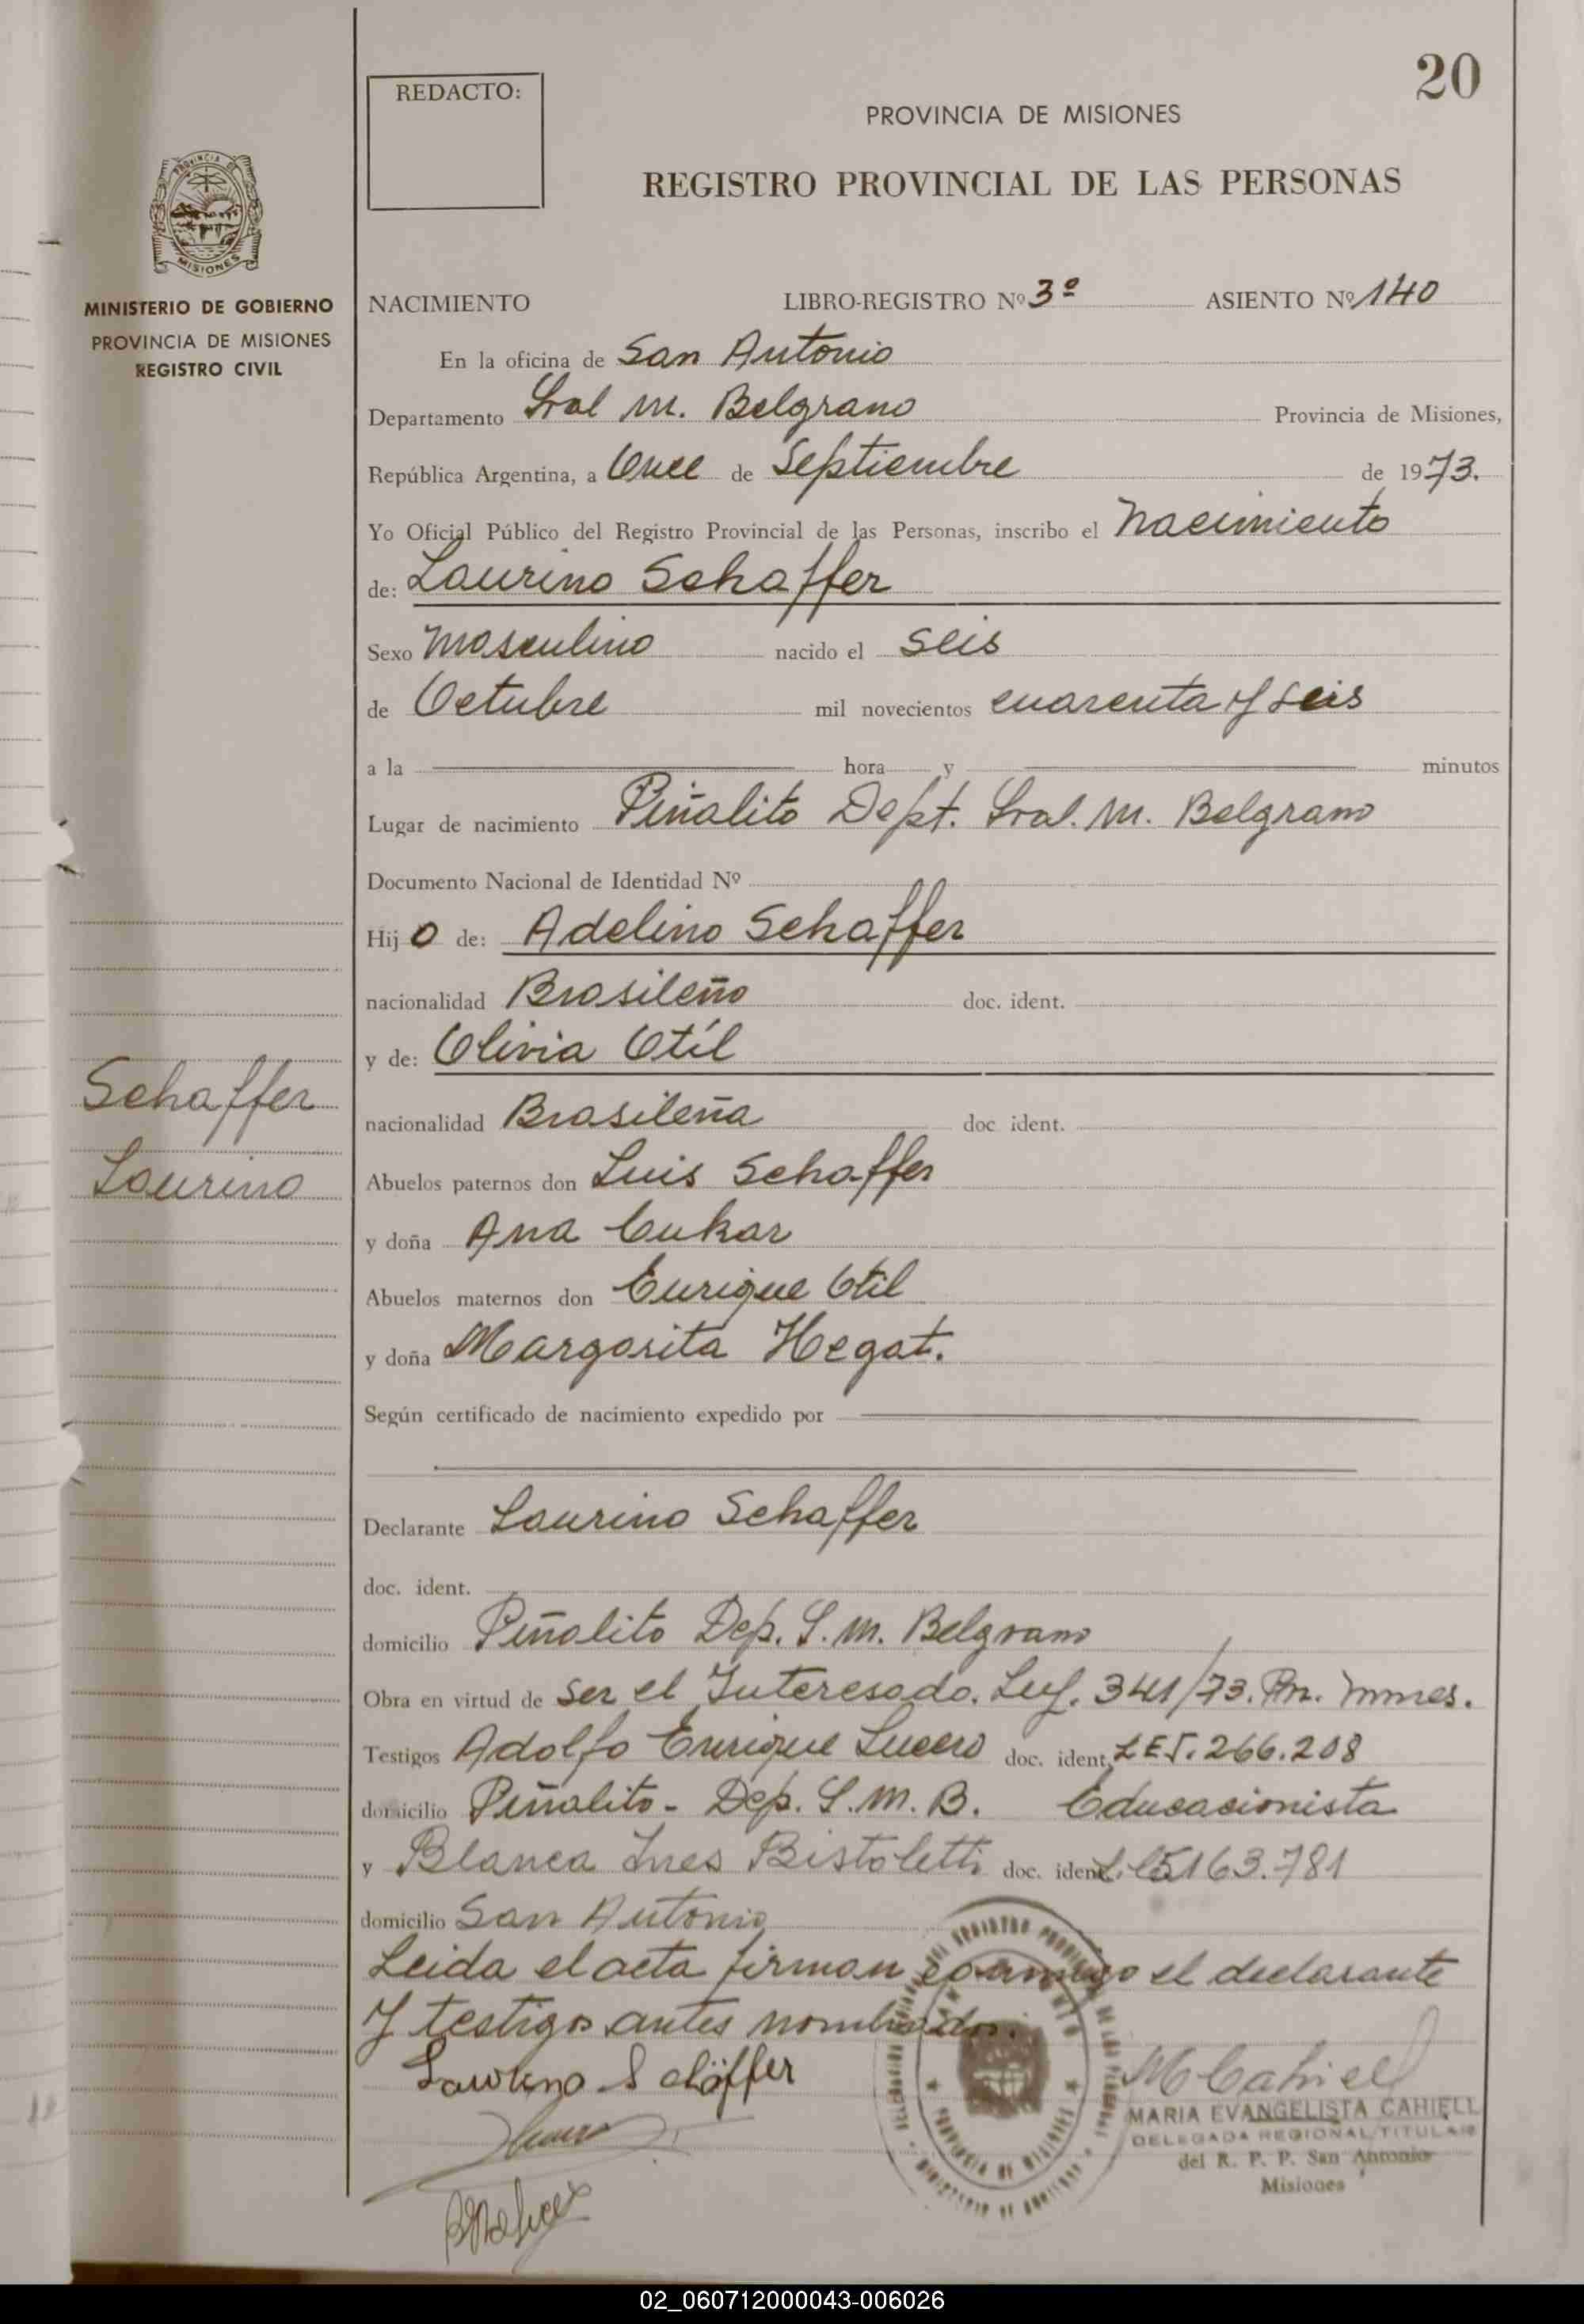 20
REDACTO:
PROVINCIA DE MISIONES
REGISTRO PROVINCIAL DE LAS PERSONAS
PROVINCIA DE
MISIONES
MINISTERIO DE GOBIERNO
PROVINCIA DE MISIONES
REGISTRO CIVIL
NACIMIENTO LIBRO-REGISTRO Nº 3º ASIENTO Nº 140
En la oficina de San Antonio
Departamento Gral M. Belgrano Provincia de Misiones,
República Argentina, a Once de Septiembre de 1973.
Yo Oficial Público del Registro Provincial de las Personas, inscribo el Nacimiento
de: Laurino Schaffer
Sexo Masculino nacido el Seis
de Octubre mil novecientos cuarenta y seis
a la hora y minutos
Lugar de nacimiento Piñalito Dept. Gral. M. Belgrano
Documento Nacional de Identidad Nº
Hijo de: Adelino Schaffer
nacionalidad Brasileño doc. ident.
y de: Olivia Otíl
Schaffer
nacionalidad Brasileña doc. ident.
Laurino
Abuelos paternos don Luis Schaffer
y doña Ana Cukar
Abuelos maternos don Enrique Otil
y doña Margarita Hegat.
Según certificado de nacimiento expedido por
Declarante Laurino Schaffer
doc. ident.
domicilio Piñalito Dep. G. M. Belgrano
Obra en virtud de Ser el Interesado. 341/73.
Testigos Adolfo Enrique Lucero doc. ident. 266.208
domicilio Piñalito- Dep. G. M. B. Educacionista
y Blanca Ines Bistoletti doc. ident. 5163.781
domicilio San Antonio
Leida el acta firman conmigo el declarante
y testigos antes nombrados.
Laurino Schäffer
M Cahiell
MARIA EVANGELISTA CAHIELL
DELEGADA REGIONAL TITULAR
del R. P. P. San Antonio
Misiones
PROVINCIA DE MISIONES
02_060712000043-006026